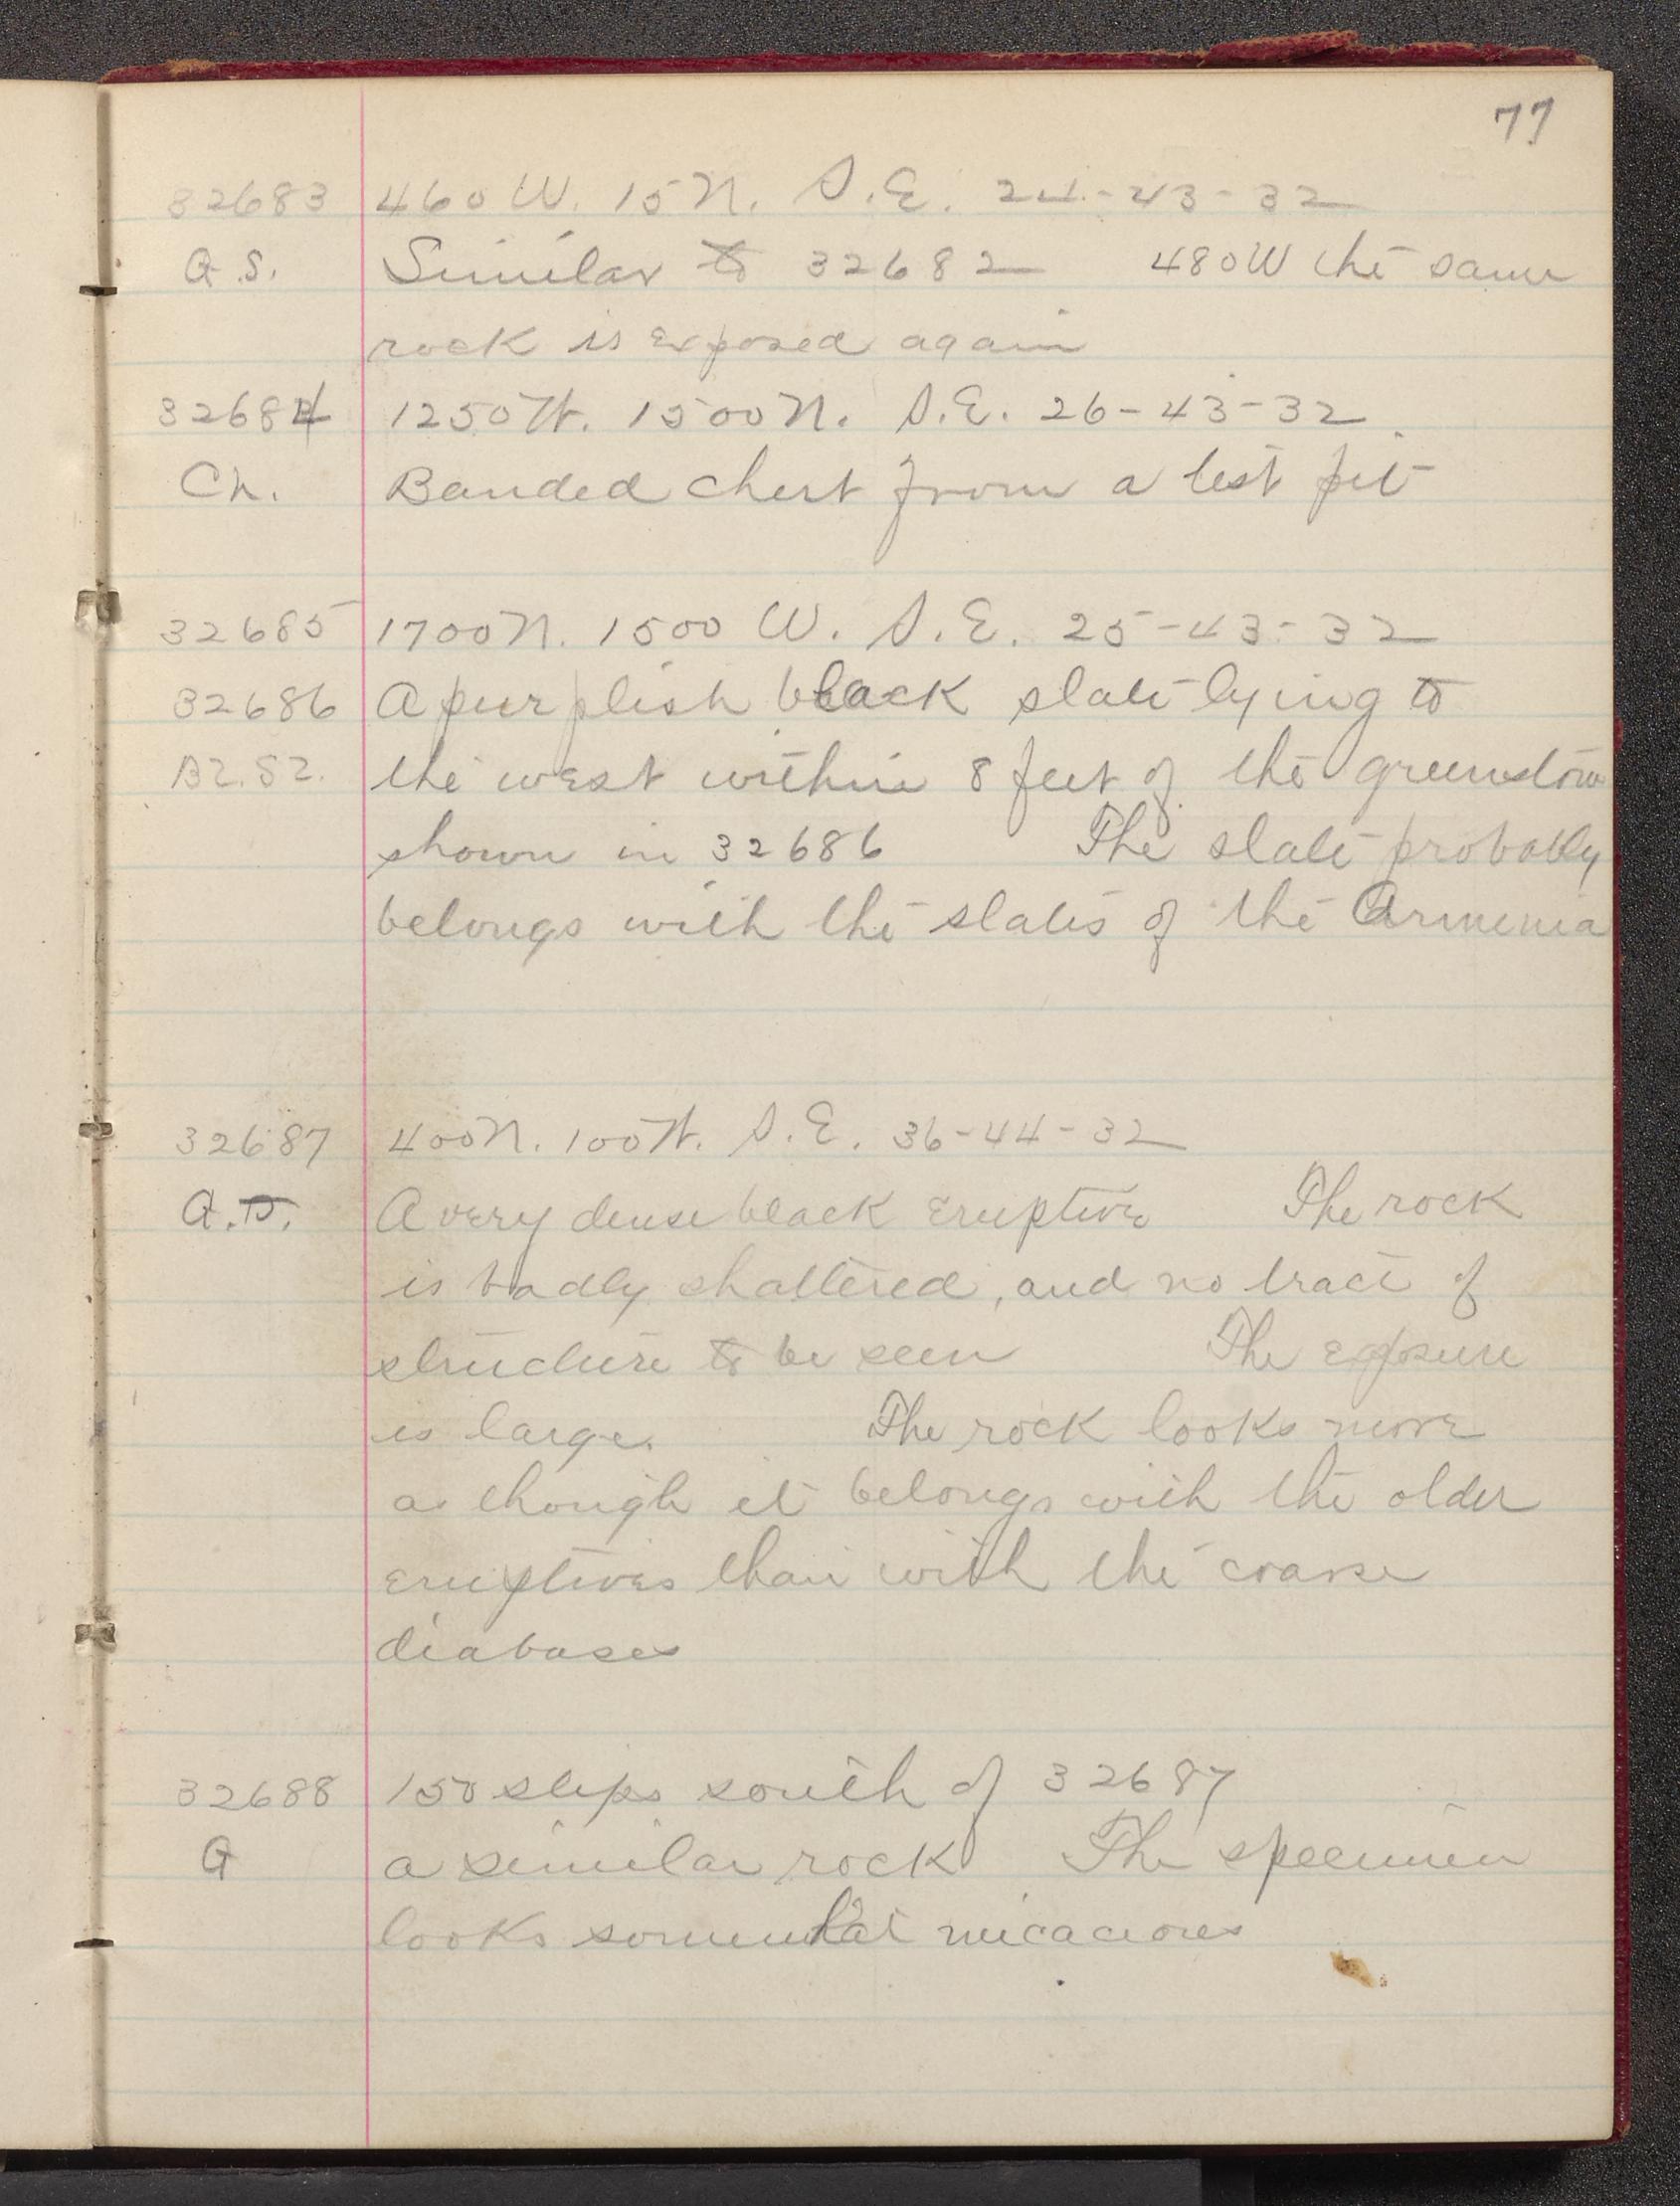 77
32683 460 W. 15 N. S.E. 24-43-32
G.S. Similar to 32682 480 W the same
rock is exposed again
32684 1250 W. 1500 N. S.E. 26-43-32
Ch. Banded chert from a test pit
32685 1700 N. 1500 W. S.E. 25-43-32
32686 A purplish black slate lying to
the west within 8 feet of the greenstone
shown in 32686 The slate probably
belongs with the slates of the Armenia
32687 400 N. 100 W. S.E. 36-44-32
A very dense black eruptive The rock
is badly shattered, and no trace of
structure to be seen The exposure
is large. The rock looks more
as though it belongs with the older
eruptives than with the coarse
diabases
32688 150 steps south of 32687
G a similar rock The specimen
looks somewhat micaceous